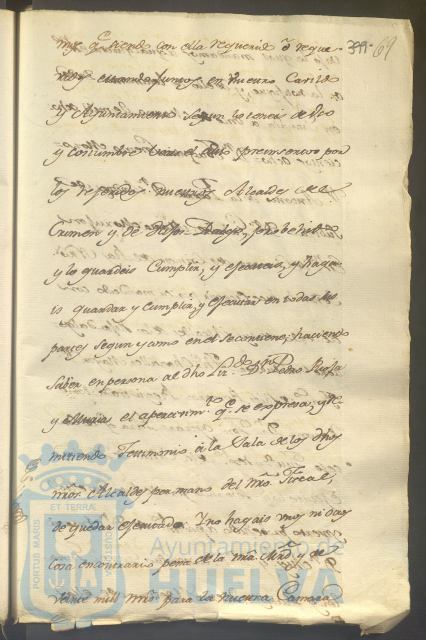 mos q.e siendo con ella requerido ó reque-
399- 69
ridos estando juntos en vuestro Cavildo
y Ayuntamiento segun lo teneis de uso
y costumbre veais el Auto preinserto por
los referidos nuestros Alcaldes del
Crimen y de Hijos-Dalgo, proveido
y lo guardeis Cumplir, y ejecuteis, y haga-
is guardar y cumplir, y ejecutar en todas sus
partes segun y como en el se contiene; haciendo
saber en persona al dho Liz.do D.n Pedro Rufa
y el apercevim.to q.e se expresa, y Re-
mitiendo Testimonio à la Sala de los dhos
nros. Alcaldes por mano del nro. Fiscal,
de quedar ejecutado. Y no hagais unos ni otros
cosa en contrario pena de la nra Mrd. y de
veinte mil mrs para la nuestra Camara
PORTUS MARIS
ET TERRÆ
CUSTODIA
Ayuntamiento de
HUELVA